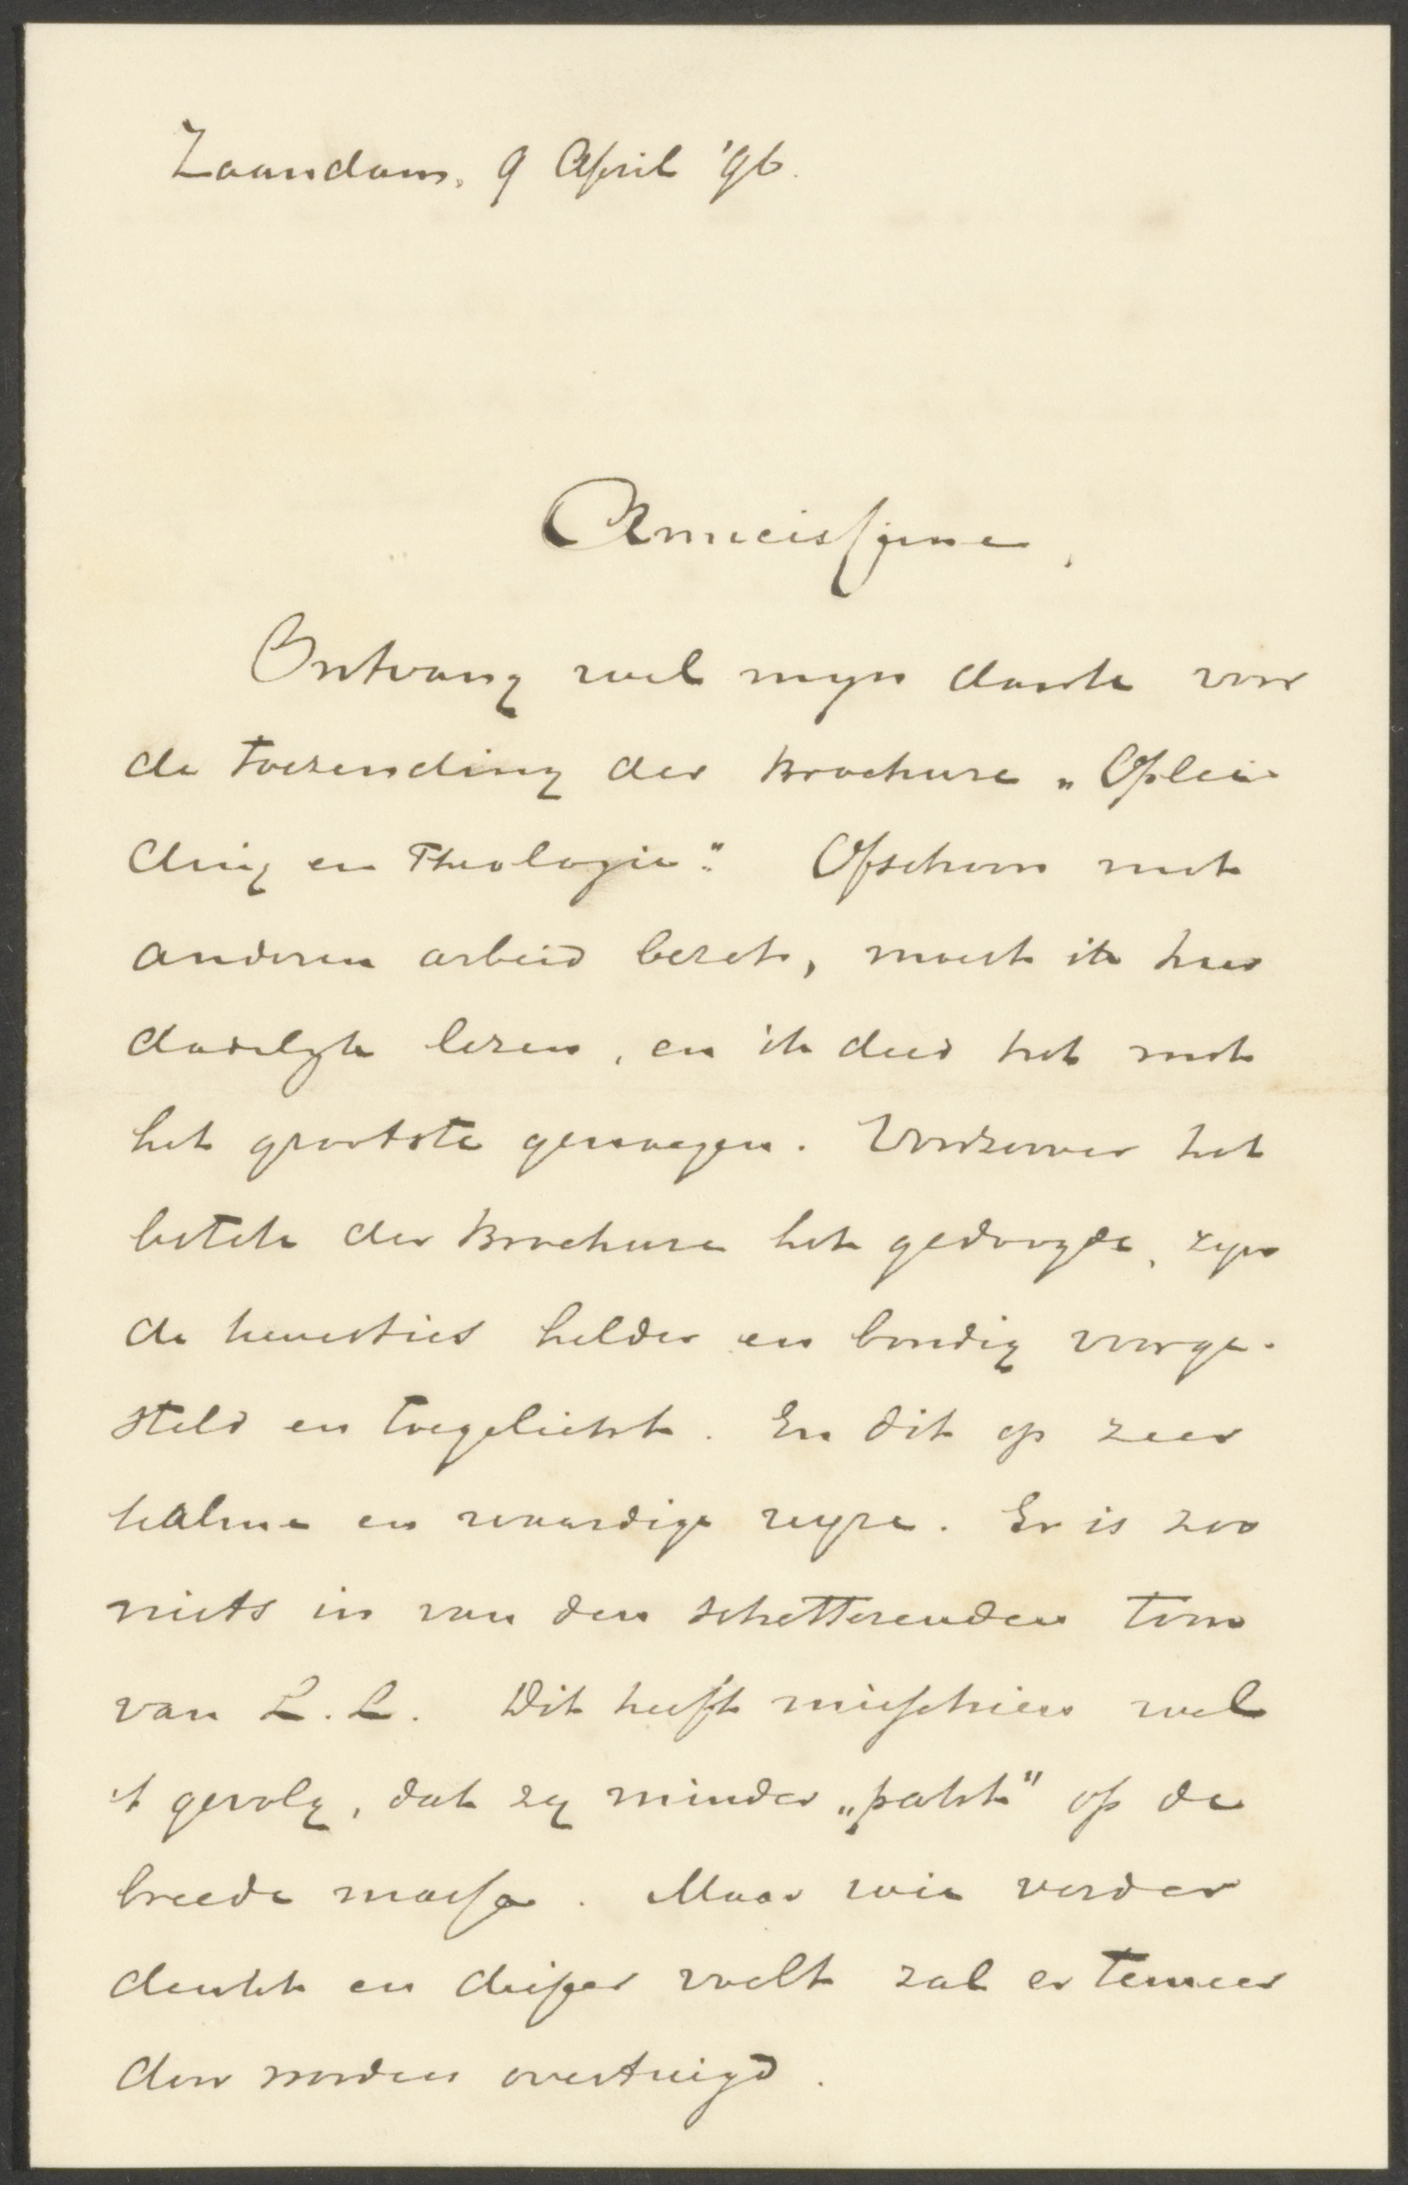 Zaandam, 9 April '96.
Amicissime,
Ontvang wel mijn dank voor
de toezending der brochure „Oplei-
ding en Theologie". Ofschoon met
anderen arbeid bezet, moest ik haar
dadelijk lezen, en ik deed het met
het grootste genoegen. Voorzoover het
bestek der brochure het gedoogde, zijn
de kwesties helder en bondig voorge-
steld en toegelicht. En dit op zeer
kalme en waardige wijze. Er is zoo
niets in van den schetterenden toon
van L. L. Dit heeft misschien wel
't gevolg, dat zij minder „pakt" op de
breede massa. Maar wie verder
denkt en dieper voelt zal er temeer
door worden overtuigd.